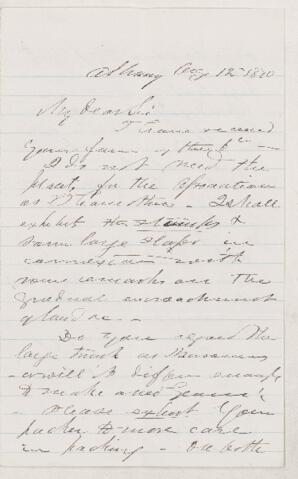 Albany Aug 12 1870
My dear Sir
I have received
your favor of the
I do not need the
plants for the Association
as I have this. I shall
exhibit the stumps &
some large slabs in
connection with
some remarks on the
gradual encroachment
of land &c —
Do you regard the
large trunk as the same
or will it differ enough
to make a new Genus?
Please exhort your
packer to more care
in packing — on both